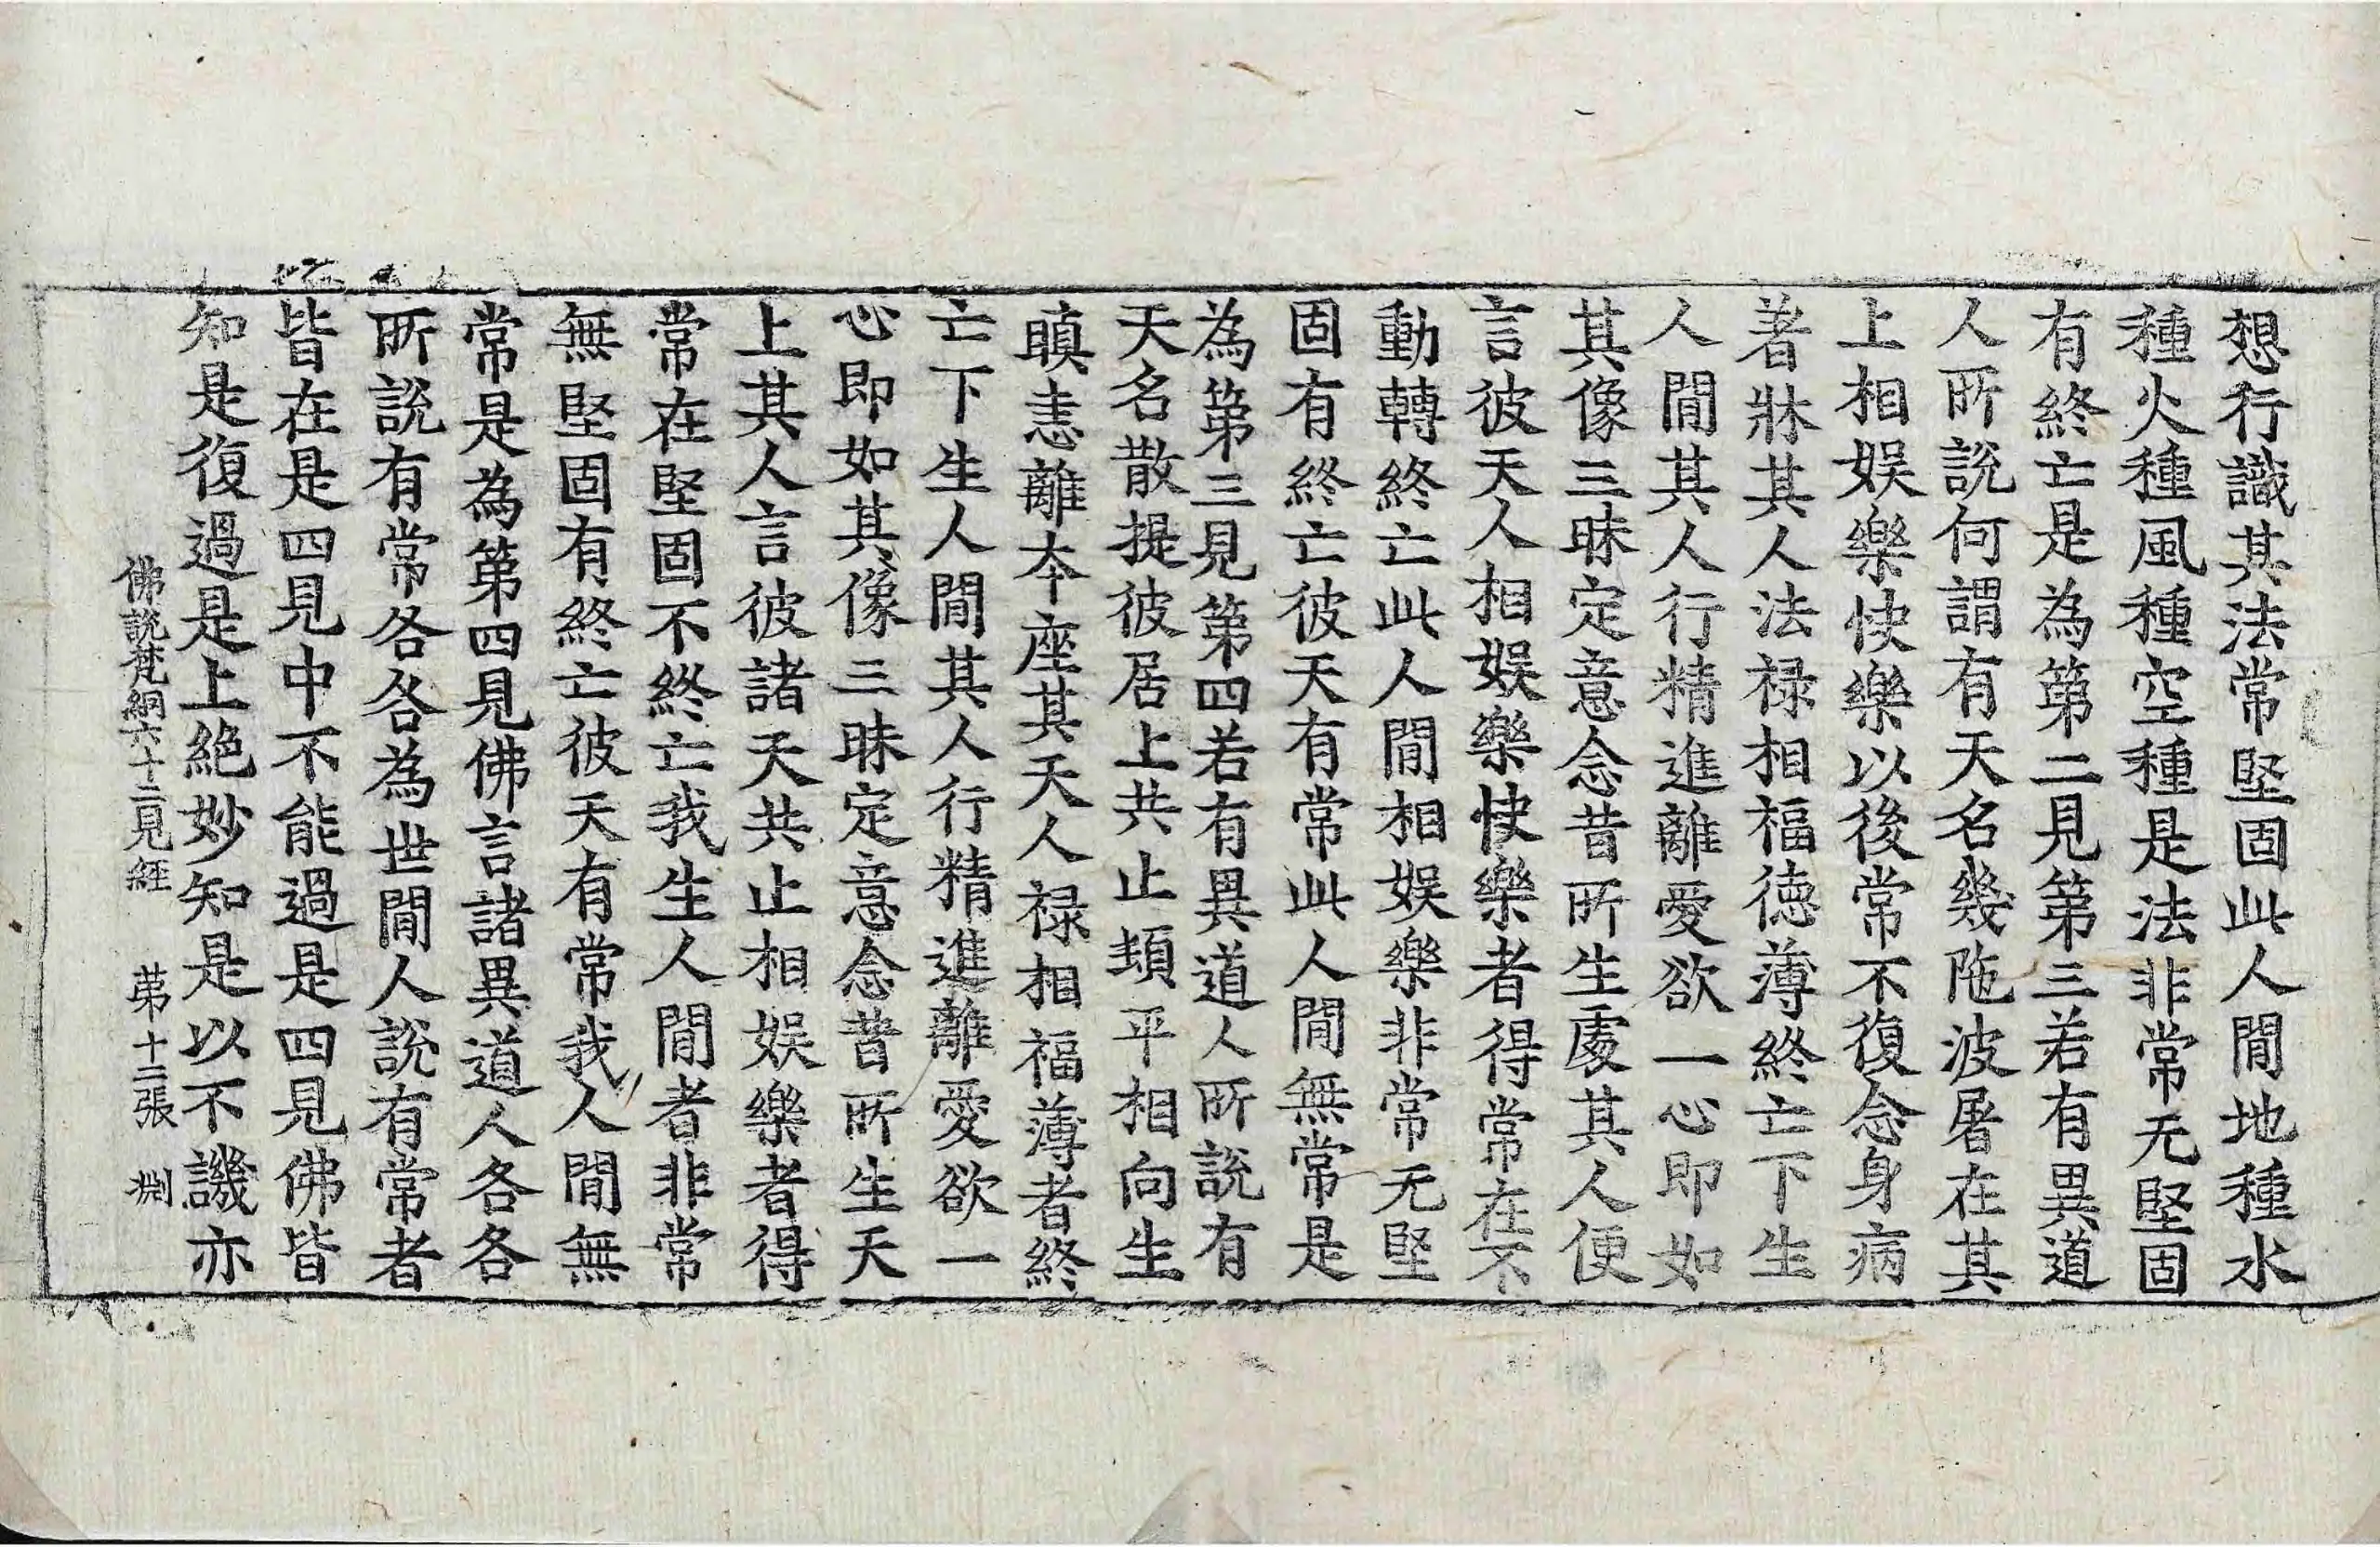 想行識其法常堅固此人間地種水
種火種風種空種是法非常无堅固
有終亡是為第二見第三若有異道
人所說何謂有天名幾陁波屠在其
上相娛樂快樂以後常不復念身病
著牀其人法禄相福德薄終亡下生
人間其人行精進離愛欲一心即如
其像三昧定意念昔所生處其人便
言彼天人相娛樂快樂者得常在不
動轉終亡此人間相娛樂非常无堅
固有終亡彼天有常此人間無常是
為第三見第四若有異道人所說有
天名散提彼居上共止頭平相向生
瞋恚離本座其天人禄相福薄者終
亡下生人間其人行精進離愛欲一
心即如其像三昧定意念昔所生天
上其人言彼諸天共止相娛樂者得
常在堅固不終亡我生人間者非常
無堅固有終亡彼天有常我人間無
常是為第四見佛言諸異道人各各
所說有常各各為世間人說有常者
皆在是四見中不能過是四見佛皆
知是復過是上絕妙知是以不譏亦
佛說梵網六十二見經 第十二張 淵